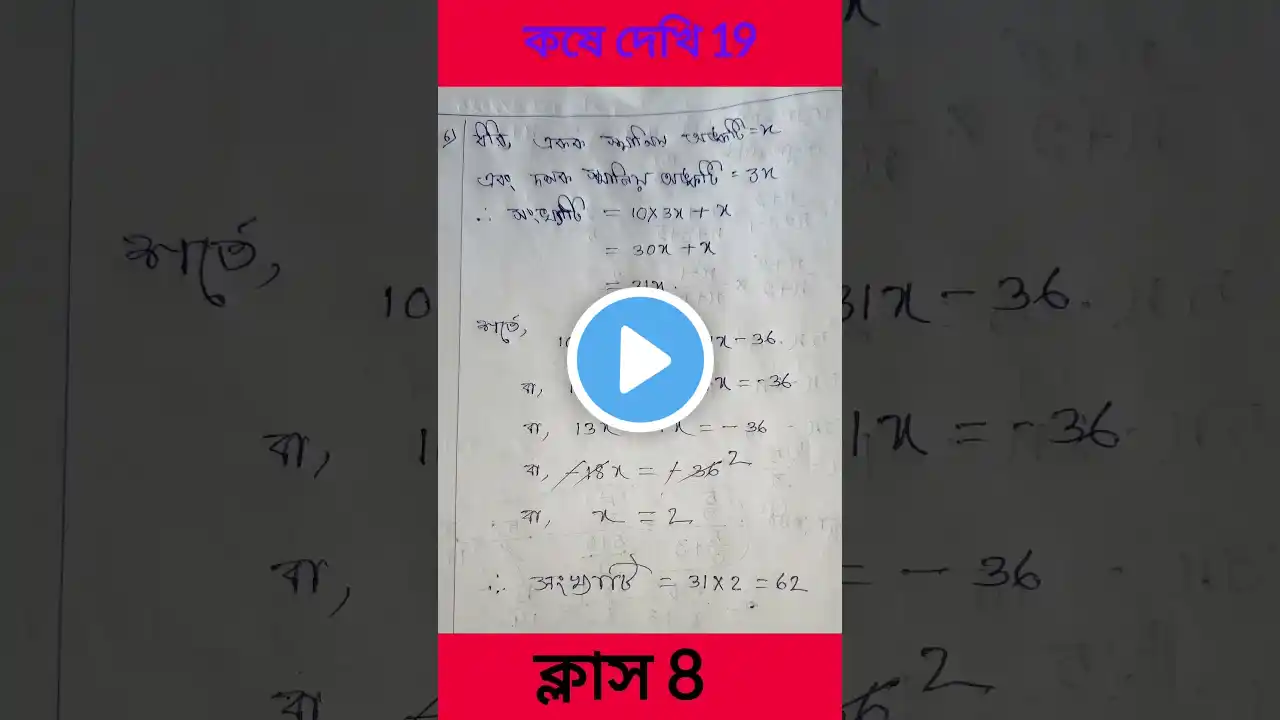 কষে দেখি 19
6) ধরি একক স্থানিয় অঙ্কটি = x
এবং দশক স্থানিয় অঙ্কটি = 3x
∴ সংখ্যাটি = 10×3x + x
= 30x + x
= 31x.
শর্তে,
10 x - 36.
বা, x = -36
বা, 13x x = - 36
বা, -18x = -36 2
বা, x = 2
∴ সংখ্যাটি = 31×2 = 62
ক্লাস 8
শর্তে,
10 31x - 36.
বা, 1 1x = -36
বা, = - 36
বা, 36 2